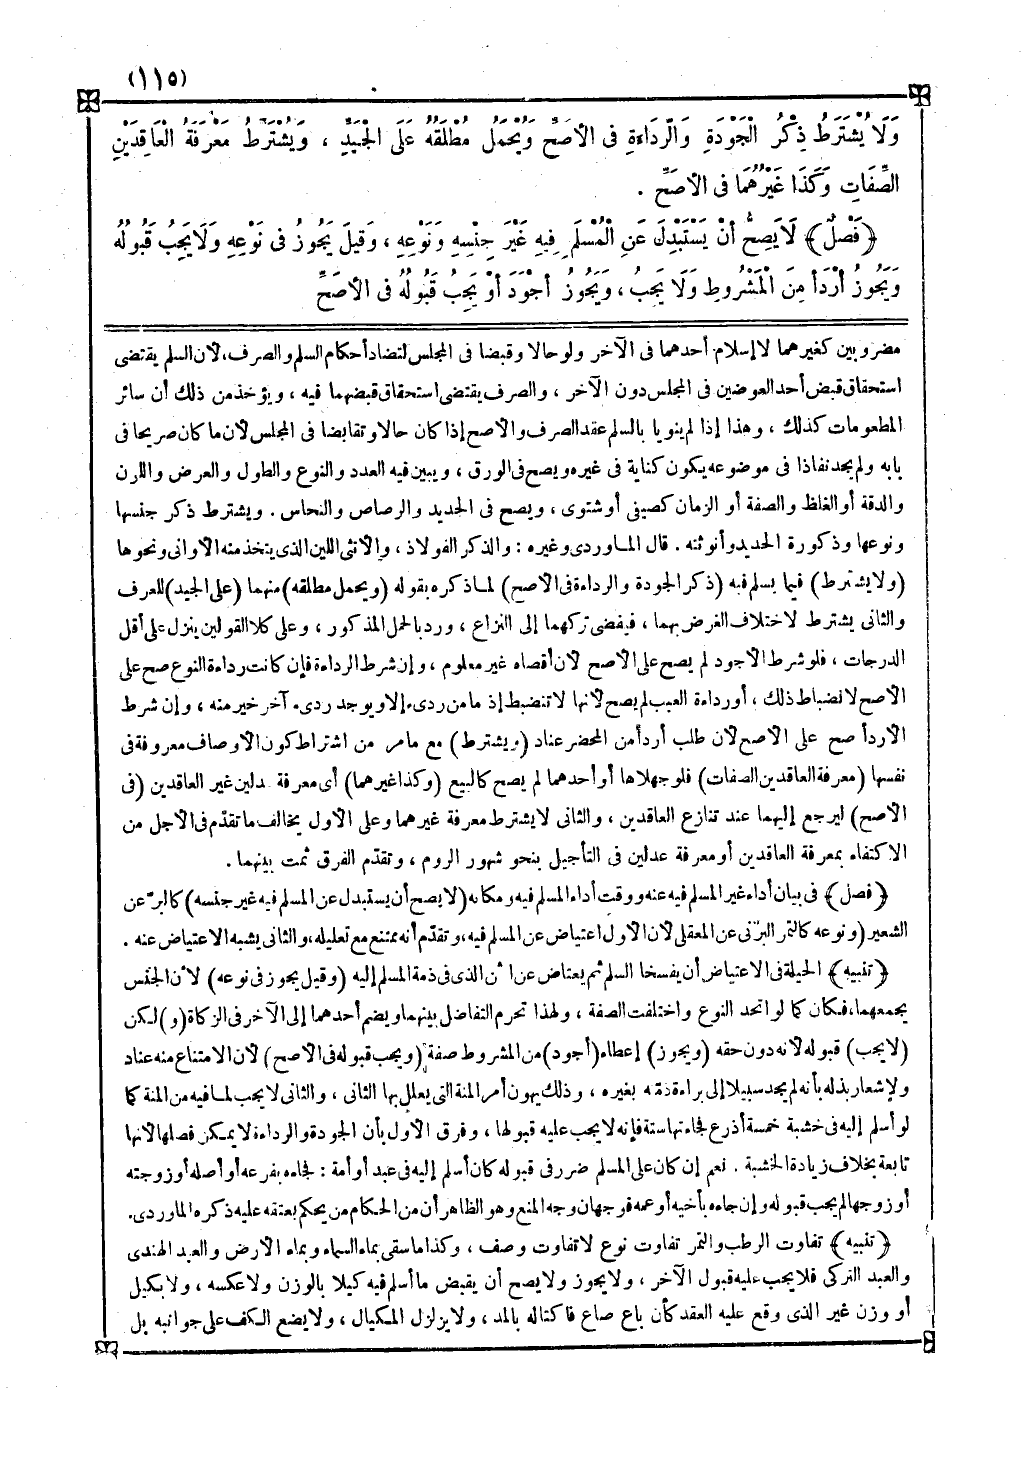 (١١٥)
وَلَا يُشْتَرَطُ ذِكْرُ الْجَوْدَةِ وَالرَّدَاءَةِ فى الأَصَحِّ وَيُحْمَلُ مُطْلَقُهُ عَلَى الْجَيِّدِ ، وَيُشْتَرَطُ مَعْرِفَةُ الْعَاقِدَيْنِ
الصِّفَاتِ وَكَذَا غَيْرُهُمَا فى الأَصَحِّ .
﴿فَصْلٌ﴾ لَا يَصِحُّ أَنْ يَسْتَبْدِلَ عَنِ الْمُسْلَمِ فِيهِ غَيْرَ جِنْسِهِ وَنَوْعِهِ ، وَقِيلَ يَجُوزُ فى نَوْعِهِ وَلَا يَجِبُ قَبُولُهُ
وَيَجُوزُ أَرْدَأُ مِنَ الْمَشْرُوطِ وَلَا يَجِبُ ، وَيَجُوزُ أَجْوَدُ وَيَجِبُ قَبُولُهُ فى الأَصَحِّ
مضروبين كغيرهما لا إسلام أحدهما فى الآخر ولو حالا وقبضا فى المجلس لتضاد أحكام السلم والصرف، لأن السلم يقتضى
استحقاق قبض أحد العوضين فى المجلس دون الآخر ، والصرف يقتضى استحقاق قبضهما فيه ، ويؤخذ من ذلك أن سائر
المطعومات كذلك ، وهذا إذا لم ينويا بالسلم عقد الصرف والأصح إذا كان حالا وتقابضا فى المجلس لأن ما كان صريحا فى
بابه ولم يجد نفاذا فى موضوعه يكون كناية فى غيره ويصح فى الورق ، ويبين فيه العدد والنوع والطول والعرض واللون
والدقة أو الغلظ والصفة أو الزمان كصيفى أو شتوى ، ويصح فى الحديد والرصاص والنحاس . ويشترط ذكر جنسها
ونوعها وذكورة الحديد وأنوثته . قال الماوردى وغيره : والذكر الفولاذ ، والأنثى اللين الذى يتخذ منه الأوانى ونحوها
(ولا يشترط) فيما يسلم فيه (ذكر الجودة والرداءة فى الأصح) لما ذكره بقوله (ويحمل مطلقه) منهما (على الجيد) للعرف
والثانى يشترط لاختلاف الغرض بهما ، فيفضى تركهما إلى النزاع ، ورد بالحمل المذكور ، وعلى كلا القولين ينزل على أقل
الدرجات ، فلو شرط الأجود لم يصح على الأصح لأن أقصاه غير معلوم ، وإن شرط الرداءة فإن كانت رداءة النوع صح على
الأصح لانضباط ذلك ، أو رداءة العيب لم يصح لأنها لا تنضبط إذ ما من ردىء إلا ويوجد ردىء آخر خير منه ، وإن شرط
الأردأ صح على الأصح لأن طلب أردأ من المحضر عناد (ويشترط) مع ما مر من اشتراط كون الأوصاف معروفة فى
نفسها (معرفة العاقدين الصفات) فلو جهلاها أو أحدهما لم يصح كالبيع (وكذا غيرهما) أى معرفة عدلين غير العاقدين (فى
الأصح) ليرجع إليهما عند تنازع العاقدين ، والثانى لا يشترط معرفة غيرهما وعلى الأول يخالف ما تقدّم فى الأجل من
الاكتفاء بمعرفة العاقدين أو معرفة عدلين فى التأجيل بنحو شهور الروم ، وتقدّم الفرق ثمت بينهما .
﴿فصل﴾ فى بيان أداء غير المسلم فيه عنه ووقت أداء المسلم فيه ومكانه (لا يصح أن يستبدل عن المسلم فيه غير جنسه) كالبرّ عن
الشعير (ونوعه كالتمر البرّنى عن المعقلى لأن الأول اعتياض عن المسلم فيه، وتقدّم أنه ممتنع مع تعليله، والثانى يشبه الاعتياض عنه .
﴿تنبيه﴾ الحيلة فى الاعتياض أن يفسخا السلم ثم يعتاض عن الثمن الذى فى ذمة المسلم إليه (وقيل يجوز فى نوعه) لأن الجنس
يجمعهما، فكان كما لو اتحد النوع واختلفت الصفة ، ولهذا تحرم التفاضل بينهما ويضم أحدهما إلى الآخر فى الزكاة (و) لكن
(لايجب) قبوله لأنه دون حقه (ويجوز) إعطاء (أجود) من المشروط صفة (ويجب قبوله فى الأصح) لأن الامتناع منه عناد
ولإشعار بذله بأنه لم يجد سبيلا إلى براءة ذمته بغيره ، وذلك يهون أمر المنة التى يعلل بها الثانى ، والثانى لا يجب لما فيه من المنة كما
لو أسلم إليه فى خشبة خمسة أذرع فجاء بها ستة فإنه لا يجب عليه قبولها ، وفرق الأول بأن الجودة والرداءة لا يمكن فصلها لأنها
تابعة بخلاف زيادة الخشبة . نعم إن كان على المسلم ضرر فى قبوله كأن أسلم إليه فى عبد أو أمة : فجاءه بفرعه أو أصله أو زوجته
أو زوجها لم يجب قبوله وإن جاءه بأخيه أو عمه فوجهان وجه المنع وهو الظاهر أن من الحكام من يحكم بعتقه عليه ذكره الماوردى.
﴿تنبيه﴾ تفاوت الرطب والتمر تفاوت نوع لا تفاوت وصف ، وكذا ما سقى بماء السماء وبماء الأرض والعبد الهندى
والعبد التركى فلا يجب عليه قبول الآخر ، ولا يجوز ولا يصح أن يقبض ما أسلم فيه كيلا بالوزن ولا عكسه ، ولا بكيل
أو وزن غير الذى وقع عليه العقد كأن باع صاع فاكتاله بالمد ، ولا يزلزل المكيال ، ولا يضع الكف على جوانبه بل